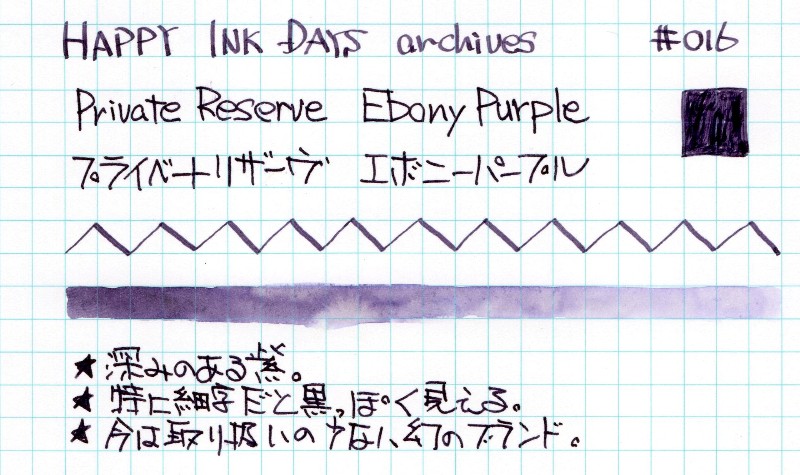 HAPPY INK DAYS archives #016
Private Reserve Ebony Purple
プライベートリザーヴ エボニーパープル
★ 深みのある紫。
★ 特に細字だと黒っぽく見える。
★ 今は取り扱いの少ない、幻のブランド。